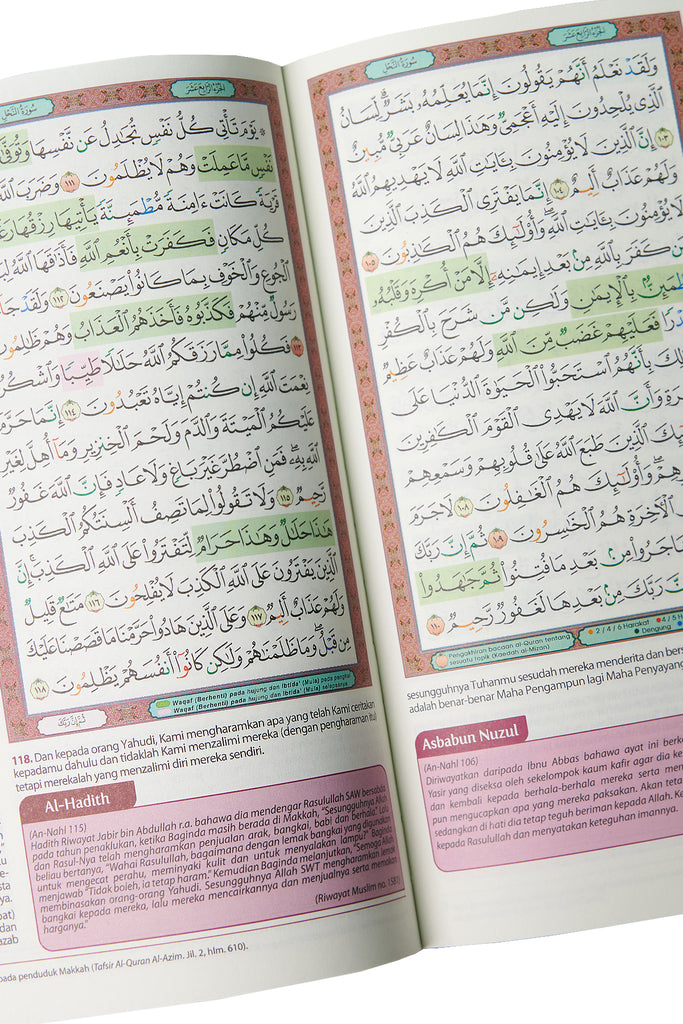 الجزء الرابع عشر
سورة النحل
وَلَقَدْ نَعْلَمُ أَنَّهُمْ يَقُولُونَ إِنَّمَا يُعَلِّمُهُۥ بَشَرٌ ۗ لِّسَانُ
ٱلَّذِى يُلْحِدُونَ إِلَيْهِ أَعْجَمِىٌّ وَهَٰذَا لِسَانٌ عَرَبِىٌّ مُّبِينٌ
١٠٣ إِنَّ ٱلَّذِينَ لَا يُؤْمِنُونَ بِـَٔايَٰتِ ٱللَّهِ لَا يَهْدِيهِمُ ٱللَّهُ
وَلَهُمْ عَذَابٌ أَلِيمٌ ١٠٤ إِنَّمَا يَفْتَرِى ٱلْكَذِبَ ٱلَّذِينَ
لَا يُؤْمِنُونَ بِـَٔايَٰتِ ٱللَّهِ ۖ وَأُو۟لَٰٓئِكَ هُمُ ٱلْكَٰذِبُونَ ١٠٥
كَفَرَ بِٱللَّهِ مِنۢ بَعْدِ إِيمَٰنِهِۦٓ إِلَّا مَنْ أُكْرِهَ وَقَلْبُهُۥ
بِٱلْإِيمَٰنِ وَلَٰكِن مَّن شَرَحَ بِٱلْكُفْرِ
فَعَلَيْهِمْ غَضَبٌ مِّنَ ٱللَّهِ وَلَهُمْ عَذَابٌ عَظِيمٌ
بِأَنَّهُمُ ٱسْتَحَبُّوا۟ ٱلْحَيَوٰةَ ٱلدُّنْيَا عَلَى
وَأَنَّ ٱللَّهَ لَا يَهْدِى ٱلْقَوْمَ ٱلْكَٰفِرِينَ
ٱلَّذِينَ طَبَعَ ٱللَّهُ عَلَىٰ قُلُوبِهِمْ وَسَمْعِهِمْ
وَأُو۟لَٰٓئِكَ هُمُ ٱلْغَٰفِلُونَ ١٠٨ لَا جَرَمَ
ٱلْـَٔاخِرَةِ هُمُ ٱلْخَٰسِرُونَ ١٠٩ ثُمَّ إِنَّ رَبَّكَ
هَاجَرُوا۟ مِنۢ بَعْدِ مَا فُتِنُوا۟ ثُمَّ جَٰهَدُوا۟
رَبَّكَ مِنۢ بَعْدِهَا لَغَفُورٌ رَّحِيمٌ ١١٠
Pengakhiran bacaan al-Quran tentang
sesuatu topik (Kaedah al-Mizan)
2 / 4 / 6 Harakat
4 / 5 H
Dengung
sesungguhnya Tuhanmu sesudah mereka menderita dan bers
adalah benar-benar Maha Pengampun lagi Maha Penyayang
Asbabun Nuzul
(An-Nahl 106)
Diriwayatkan daripada Ibnu Abbas bahawa ayat ini berke
Yasir yang diseksa oleh sekelompok kaum kafir agar dia ke
dan kembali kepada berhala-berhala mereka serta men
pun mengucapkan apa yang mereka paksakan. Akan teta
sedangkan di hati dia tetap teguh beriman kepada Allah. Ke
kepada Rasulullah dan menyatakan keteguhan imannya.
الجزء الرابع عشر
سورة النحل
۞ يَوْمَ تَأْتِى كُلُّ نَفْسٍ تُجَٰدِلُ عَن نَّفْسِهَا وَتُوَفَّىٰ
نَفْسٍ مَّا عَمِلَتْ وَهُمْ لَا يُظْلَمُونَ ١١١ وَضَرَبَ ٱللَّهُ
قَرْيَةً كَانَتْ ءَامِنَةً مُّطْمَئِنَّةً يَأْتِيهَا رِزْقُهَا
كُلِّ مَكَانٍ فَكَفَرَتْ بِأَنْعُمِ ٱللَّهِ فَأَذَٰقَهَا ٱللَّهُ
ٱلْجُوعِ وَٱلْخَوْفِ بِمَا كَانُوا۟ يَصْنَعُونَ ١١٢ وَلَقَدْ
رَسُولٌ مِّنْهُمْ فَكَذَّبُوهُ فَأَخَذَهُمُ ٱلْعَذَابُ وَهُمْ ظَٰلِمُونَ
١١٣ فَكُلُوا۟ مِمَّا رَزَقَكُمُ ٱللَّهُ حَلَٰلًا طَيِّبًا وَٱشْكُرُوا۟
نِعْمَتَ ٱللَّهِ إِن كُنتُمْ إِيَّاهُ تَعْبُدُونَ ١١٤ إِنَّمَا حَرَّمَ
عَلَيْكُمُ ٱلْمَيْتَةَ وَٱلدَّمَ وَلَحْمَ ٱلْخِنزِيرِ وَمَآ أُهِلَّ لِغَيْرِ
ٱللَّهِ بِهِۦ ۖ فَمَنِ ٱضْطُرَّ غَيْرَ بَاغٍ وَلَا عَادٍ فَإِنَّ ٱللَّهَ غَفُورٌ
رَّحِيمٌ ١١٥ وَلَا تَقُولُوا۟ لِمَا تَصِفُ أَلْسِنَتُكُمُ ٱلْكَذِبَ
هَٰذَا حَلَٰلٌ وَهَٰذَا حَرَامٌ لِّتَفْتَرُوا۟ عَلَى ٱللَّهِ ٱلْكَذِبَ ۚ إِنَّ
ٱلَّذِينَ يَفْتَرُونَ عَلَى ٱللَّهِ ٱلْكَذِبَ لَا يُفْلِحُونَ ١١٦ مَتَٰعٌ قَلِيلٌ
وَلَهُمْ عَذَابٌ أَلِيمٌ ١١٧ وَعَلَى ٱلَّذِينَ هَادُوا۟ حَرَّمْنَا مَا قَصَصْنَا عَلَيْكَ
مِن قَبْلُ ۖ وَمَا ظَلَمْنَٰهُمْ وَلَٰكِن كَانُوٓا۟ أَنفُسَهُمْ يَظْلِمُونَ ١١٨
Waqaf (Berhenti) pada hujung dan Ibtida' (Mula) pada pangkal
Waqaf (Berhenti) pada hujung dan Ibtida' (Mula) selepasnya
ثم إن ربك
118. Dan kepada orang Yahudi, Kami mengharamkan apa yang telah Kami ceritakan
kepadamu dahulu dan tidaklah Kami menzalimi mereka (dengan pengharaman itu)
tetapi merekalah yang menzalimi diri mereka sendiri.
Al-Hadith
(An-Nahl 115)
Hadith Riwayat Jabir bin Abdullah r.a. bahawa dia mendengar Rasulullah SAW bersabda
pada tahun penaklukan, ketika Baginda masih berada di Makkah, "Sesungguhnya Allah
dan Rasul-Nya telah mengharamkan penjualan arak, bangkai, babi dan berhala." Lalu
beliau bertanya, "Wahai Rasulullah, bagaimana dengan lemak bangkai yang digunakan
untuk mengecat perahu, meminyaki kulit dan untuk menyalakan lampu?" Baginda
menjawab "Tidak boleh, ia tetap haram." Kemudian Baginda melanjutkan, "Semoga Allah
membinasakan orang-orang Yahudi. Sesungguhnya Allah SWT mengharamkan lemak
bangkai kepada mereka, lalu mereka mencairkannya dan menjualnya serta memakan
harganya."
(Riwayat Muslim no. 1581)
pada penduduk Makkah (Tafsir Al-Quran Al-Azim. Jil. 2, hlm. 610).